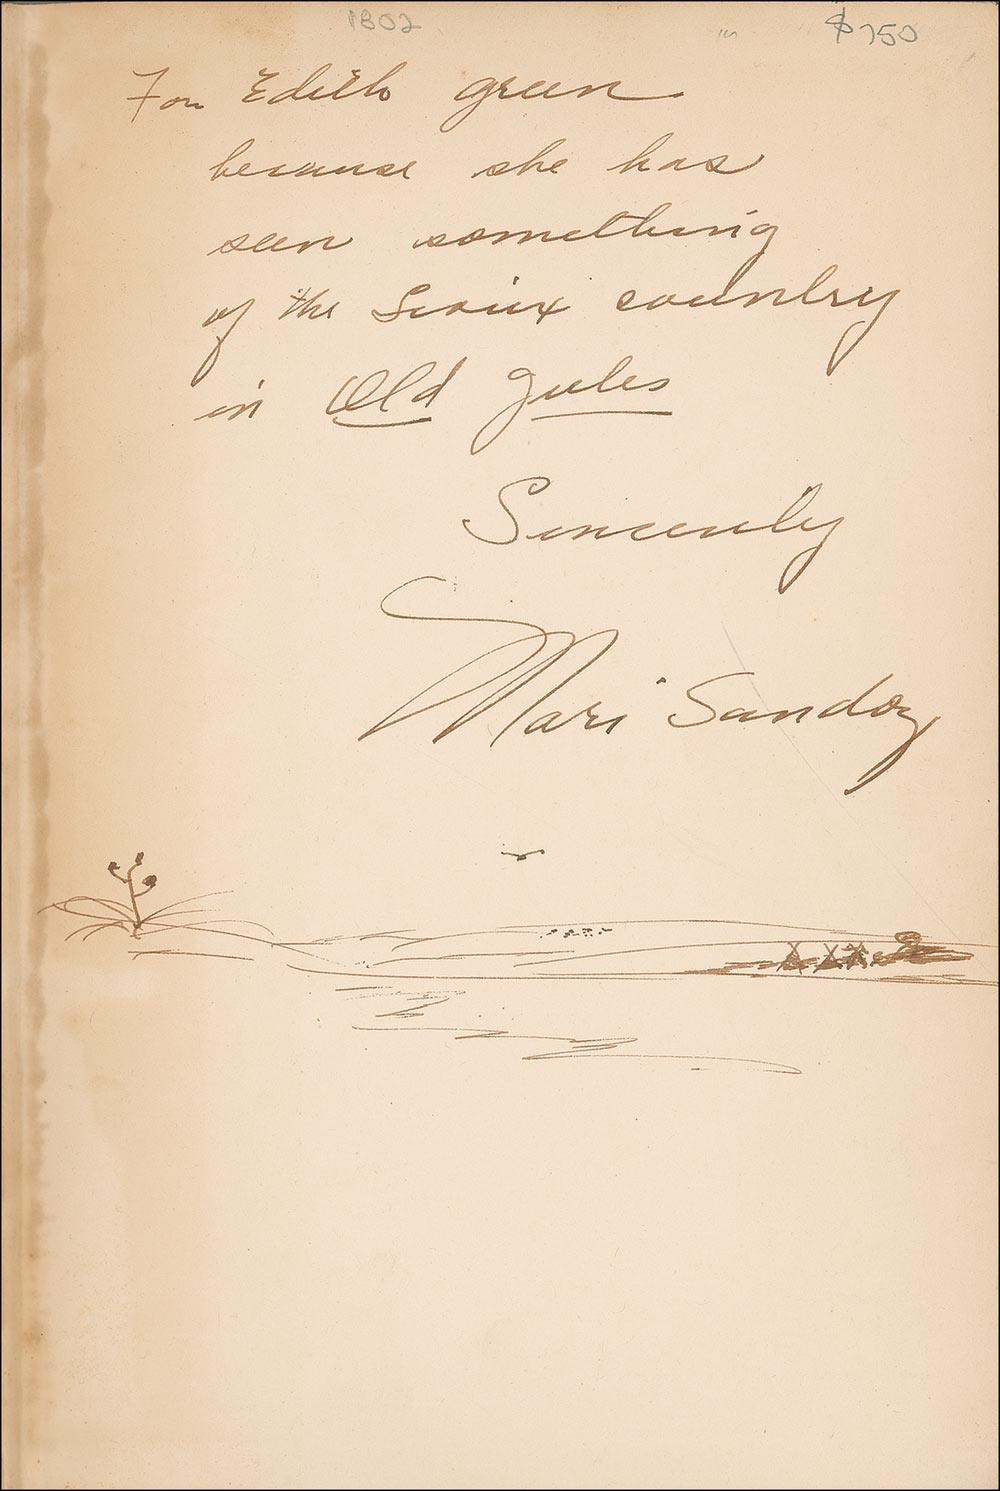 1802
$750
For Edith Green
because she has
seen something
of the Sioux country
in Old Jules
Sincerely
Mari Sandoz